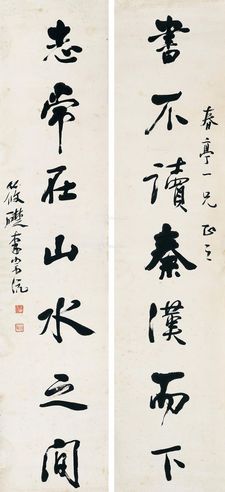 春亭一兄 正之
書不讀秦漢而下
志常在山水之間
筱 李